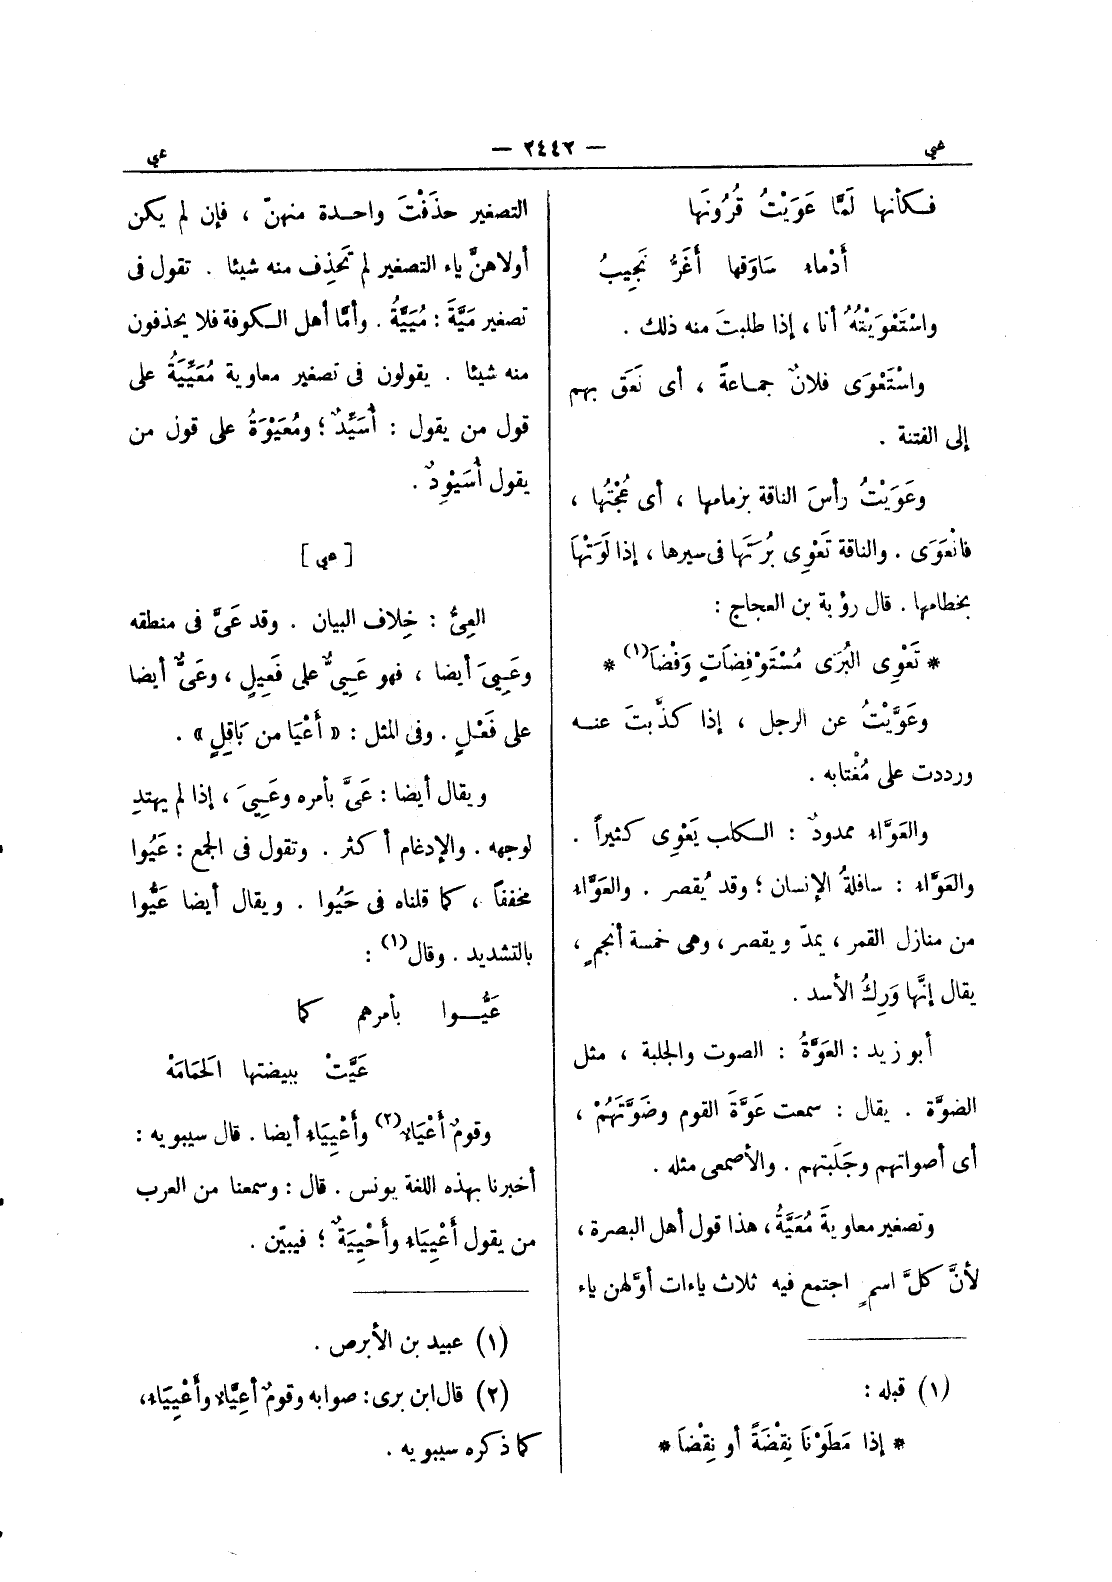 عي
— ٢٤٤٢ —
عي
فكأنها لَمَّا عَوَيْتُ قُرُونَها
أَدْماء سَاوَقها أَغَرُّ نَجِيبُ
واسْتَعْوَيْتُهُ أنا ، إذا طلبتَ منه ذلك .
واسْتَعْوَى فلانٌ جماعةً ، أى نَعَق بهم
إلى الفتنة .
وعَوَيْتُ رأسَ الناقة بزمامها ، أى عُجْتُها ،
فانْعَوَى . والناقة تَعْوِى بُرَتَها فى سيرها ، إذا لَوَتْها
بخطامها . قال رؤبة بن العجاج :
* تَعْوِى البُرَى مُسْتَوْفِضَاتٍ وَفْضَا(١) *
وعَوَّيْتُ عن الرجل ، إذا كذَّبتَ عنه
ورددت على مُغْتابه .
والعَوَّاء ممدودٌ : الكلب يَعْوِى كثيراً .
والعَوَّاء : سافلةُ الإنسان ؛ وقد يُقصر . والعَوَّاء
من منازل القمر ، يمدّ ويقصر ، وهى خمسة أنجمٍ ،
يقال إنَّها وَرِكُ الأسد .
أبو زيد : العَوَّةُ : الصوت والجلبة ، مثل
الضوَّة . يقال : سمعت عَوَّةَ القوم وضَوَّتَهُمْ ،
أى أصواتهم وجَلَبتهم . والأصمعى مثله .
وتصغير معاوية مُعَيَّةُ ، هذا قول أهل البصرة ،
لأنَّ كلَّ اسمٍ اجتمع فيه ثلاث ياءات أوَّلهن ياء
(١) قبله :
* إذا مَطَوْنَا نِقْضَةً أو نِقْضَا *
التصغير حذَفْتَ واحدة منهنّ ، فإن لم يكن
أولاهنَّ ياء التصغير لم تَحذِف منه شيئا . تقول فى
تصغير مَيَّةَ : مُيَيَّةُ . وأمَّا أهل الكوفة فلا يحذفون
منه شيئا . يقولون فى تصغير معاوية مُعَيِّيَةُ على
قول من يقول : أُسَيِّدٌ ؛ ومُعَيْوِةُ على قول من
يقول أُسَيْوِدٌ .
[ عي ]
العِىُّ : خِلاف البيان . وقد عَىَّ فى منطقه
وعَيِىَ أيضا ، فهو عَيِىٌّ على فَعِيلٍ ، وعَىٌّ أيضا
على فَعْلٍ . وفى المثل : « أَعْيَا من بَاقِلٍ » .
ويقال أيضا : عَىَّ بأمره وعَيِىَ ، إذا لم يهتدِ
لوجهه . والإدغام أكثر . وتقول فى الجمع : عَيُوا
مخففاً ، كما قلناه فى حَيُوا . ويقال أيضا عَيُّوا
بالتشديد . وقال(١) :
عَيُّوا بأمرهم كما
عَيَّتْ ببيضتها الحَمَامَهْ
وقومٌ أَعْيَاء(٢) وأَعْيِيَاء أيضا . قال سيبويه :
أخبرنا بهذه اللغة يونس . قال : وسمعنا من العرب
من يقول أَعْيِيَاء وأَحْيِيَةٌ ؛ فيبيّن .
(١) عبيد بن الأبرص .
(٢) قال ابن برى : صوابه وقومٌ أَعِيَّاء وأَعْيِيَاء ،
كما ذكره سيبويه .